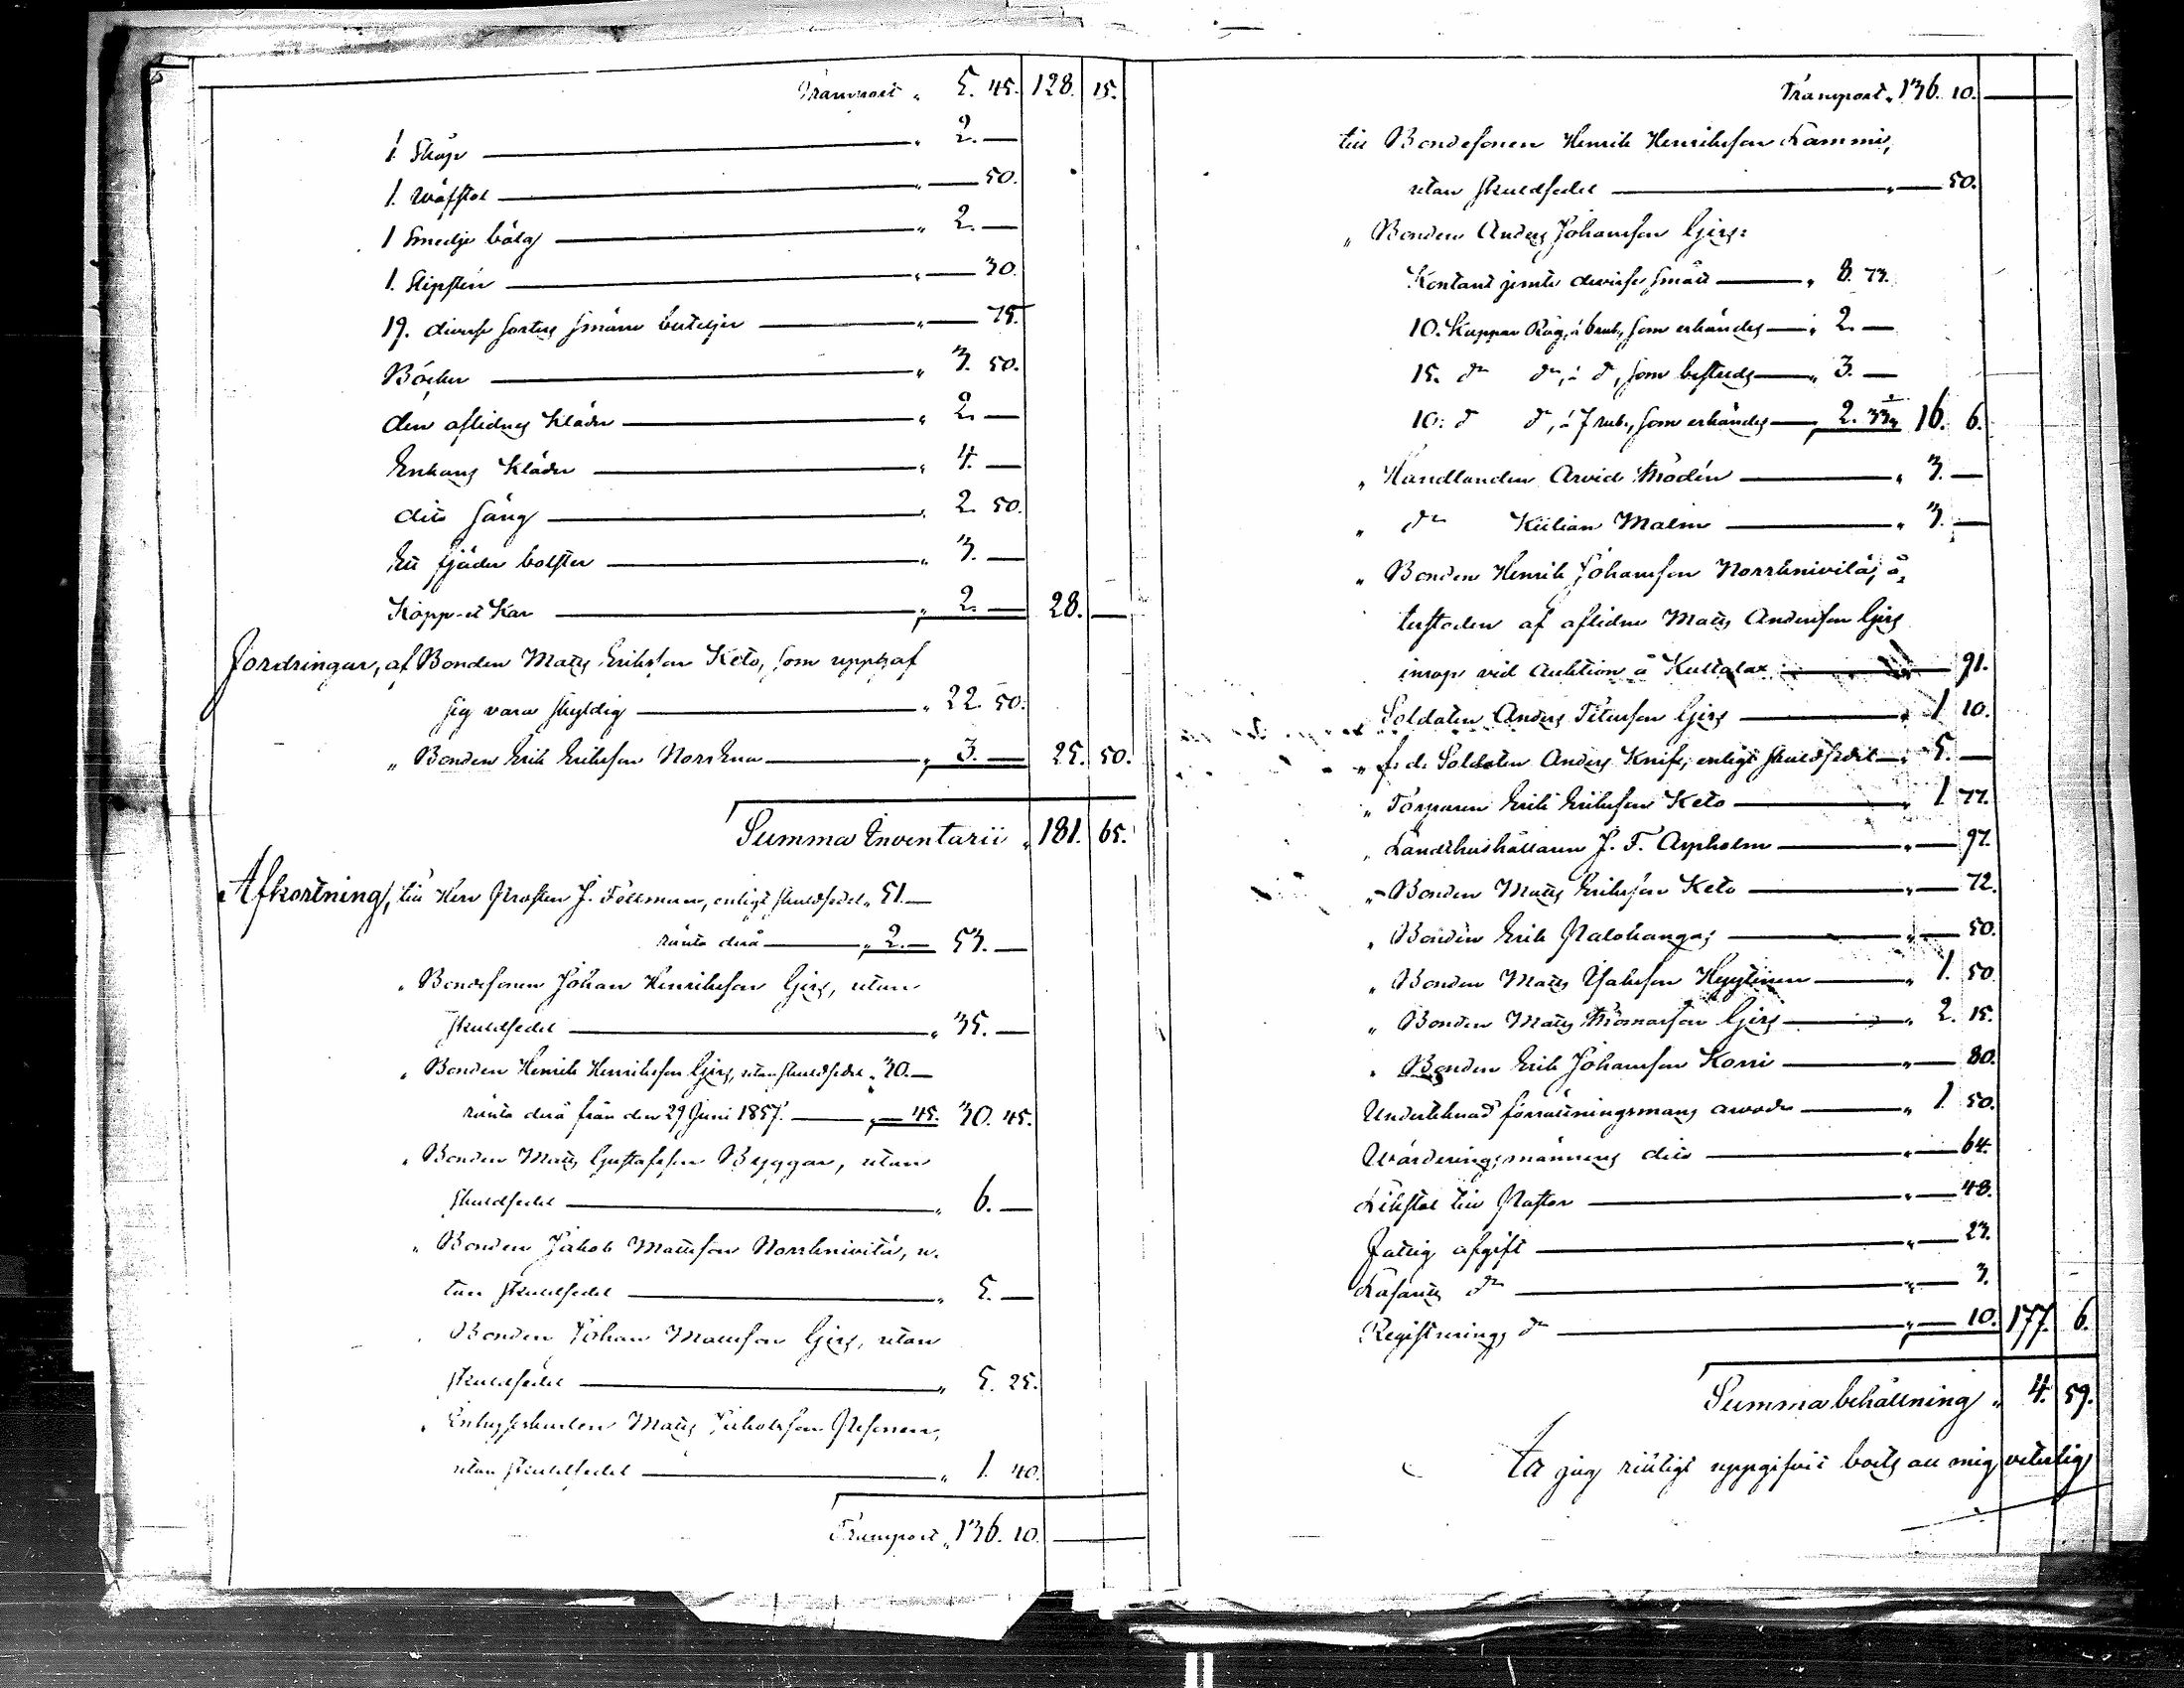 Transport „ 5. 45. 128. 15.
1. Skåp — „ 2. —
1. Wäfstol — „ — 50.
1 Smedje bälg — „ 2. —
1. Slipsten — „ — 30.
19. diverse sorters smärre buteljer — „ — 75.
Böcker — „ 3. 50.
den aflidnes Kläder — „ 2. —
Enkans Kläder — „ 4. —
dito säng — „ 2. 50.
Ett fjäder bolster — „ 3. —
Kopp-et Kar — „ 2. — 28. —
Fordringar, af Bonden Matts Eriksson Keto, som uppgaf
sig vara skyldig — „ 22. 50.
„ Bonden Erik Eriksson — „ 3. — 25. 50.
Summa Inventarii „ 181. 65.
Afkortning, till Herr Prosten J. Fellman, enligt skuldsedel „ 51. —
ränta derå — „ 2. — 53. —
„ Bondesonen Johan Henriksson Girs, utan
skuldsedel — „ 35. —
„ Bonden Henrik Henriksson Girs, utan skuldsedel „ 30. —
ränta derå från den 29 Juni 1857. — „ — 45. 30. 45.
„ Bonden Matts Gustafsson Byggar, utan
skuldsedel — „ 6. —
„ Bonden Jakob Mattsson Norrknivilä, u-
tan skuldsedel — „ 5. —
„ Bonden Johan Mattsson Girs, utan
skuldsedel — „ 5. 25.
„ Matts Jakobsson
utan skuldsedel — „ 1. 40.
Transport „ 136. 10. —
Transport „ 136. 10. —
till Bondesonen Henrik Henriksson Lammi,
utan skuldsedel — „ — 50.
„ Bonden Anders Johansson Girs:
Kontant jemte diverse smått — „ 8. 73.
10. Kappar Råg, à 6 rub., som erhåndes — „ 2. —
15. do do, à do, som bestreds — „ 3. —
10: do do, à 7 rub., som erhåndes — „ 2. 33 16. 6.
„ Handlanden Arvid Modén — „ 3. —
„ do Kilian Malm — „ 3. —
„ Bonden Henrik Johansson Norrknivilä, å-
terstoden af aflidne Matts Andersson Girs
inrop vid Auktion å — „ — 91.
„ Soldaten Anders Petersson Girs — „ 1 10.
„ f. d. Soldaten Anders Knif, enligt skuldsedel — „ 5. —
„ Torparen Erik Eriksson Keto — „ 1 77.
„ Landthushållaren J. F. Aspholm — „ — 97.
„ Bonden Matts Eriksson Keto — „ — 72.
„ Bonden Erik Palokangas — „ — 50.
„ Bonden Matts Isaksson Hyytinen — „ 1. 50
„ Bonden Matts Thomasson Girs — „ 2. 15.
„ Bonden Erik Johansson Korri — „ — 80.
Undertecknad förrättningsmans arvode — „ 1. 50.
Wärderingsmännens dito — „ — 64.
Likstol till Pastor — „ — 48.
Fattig afgift — „ — 23.
Lasaretts do — „ — 3.
Registrerings do — „ — 10. 177. 6.
Summa behållning „ 4. 59.
jag riktigt uppgifvit boets all mig veterlig